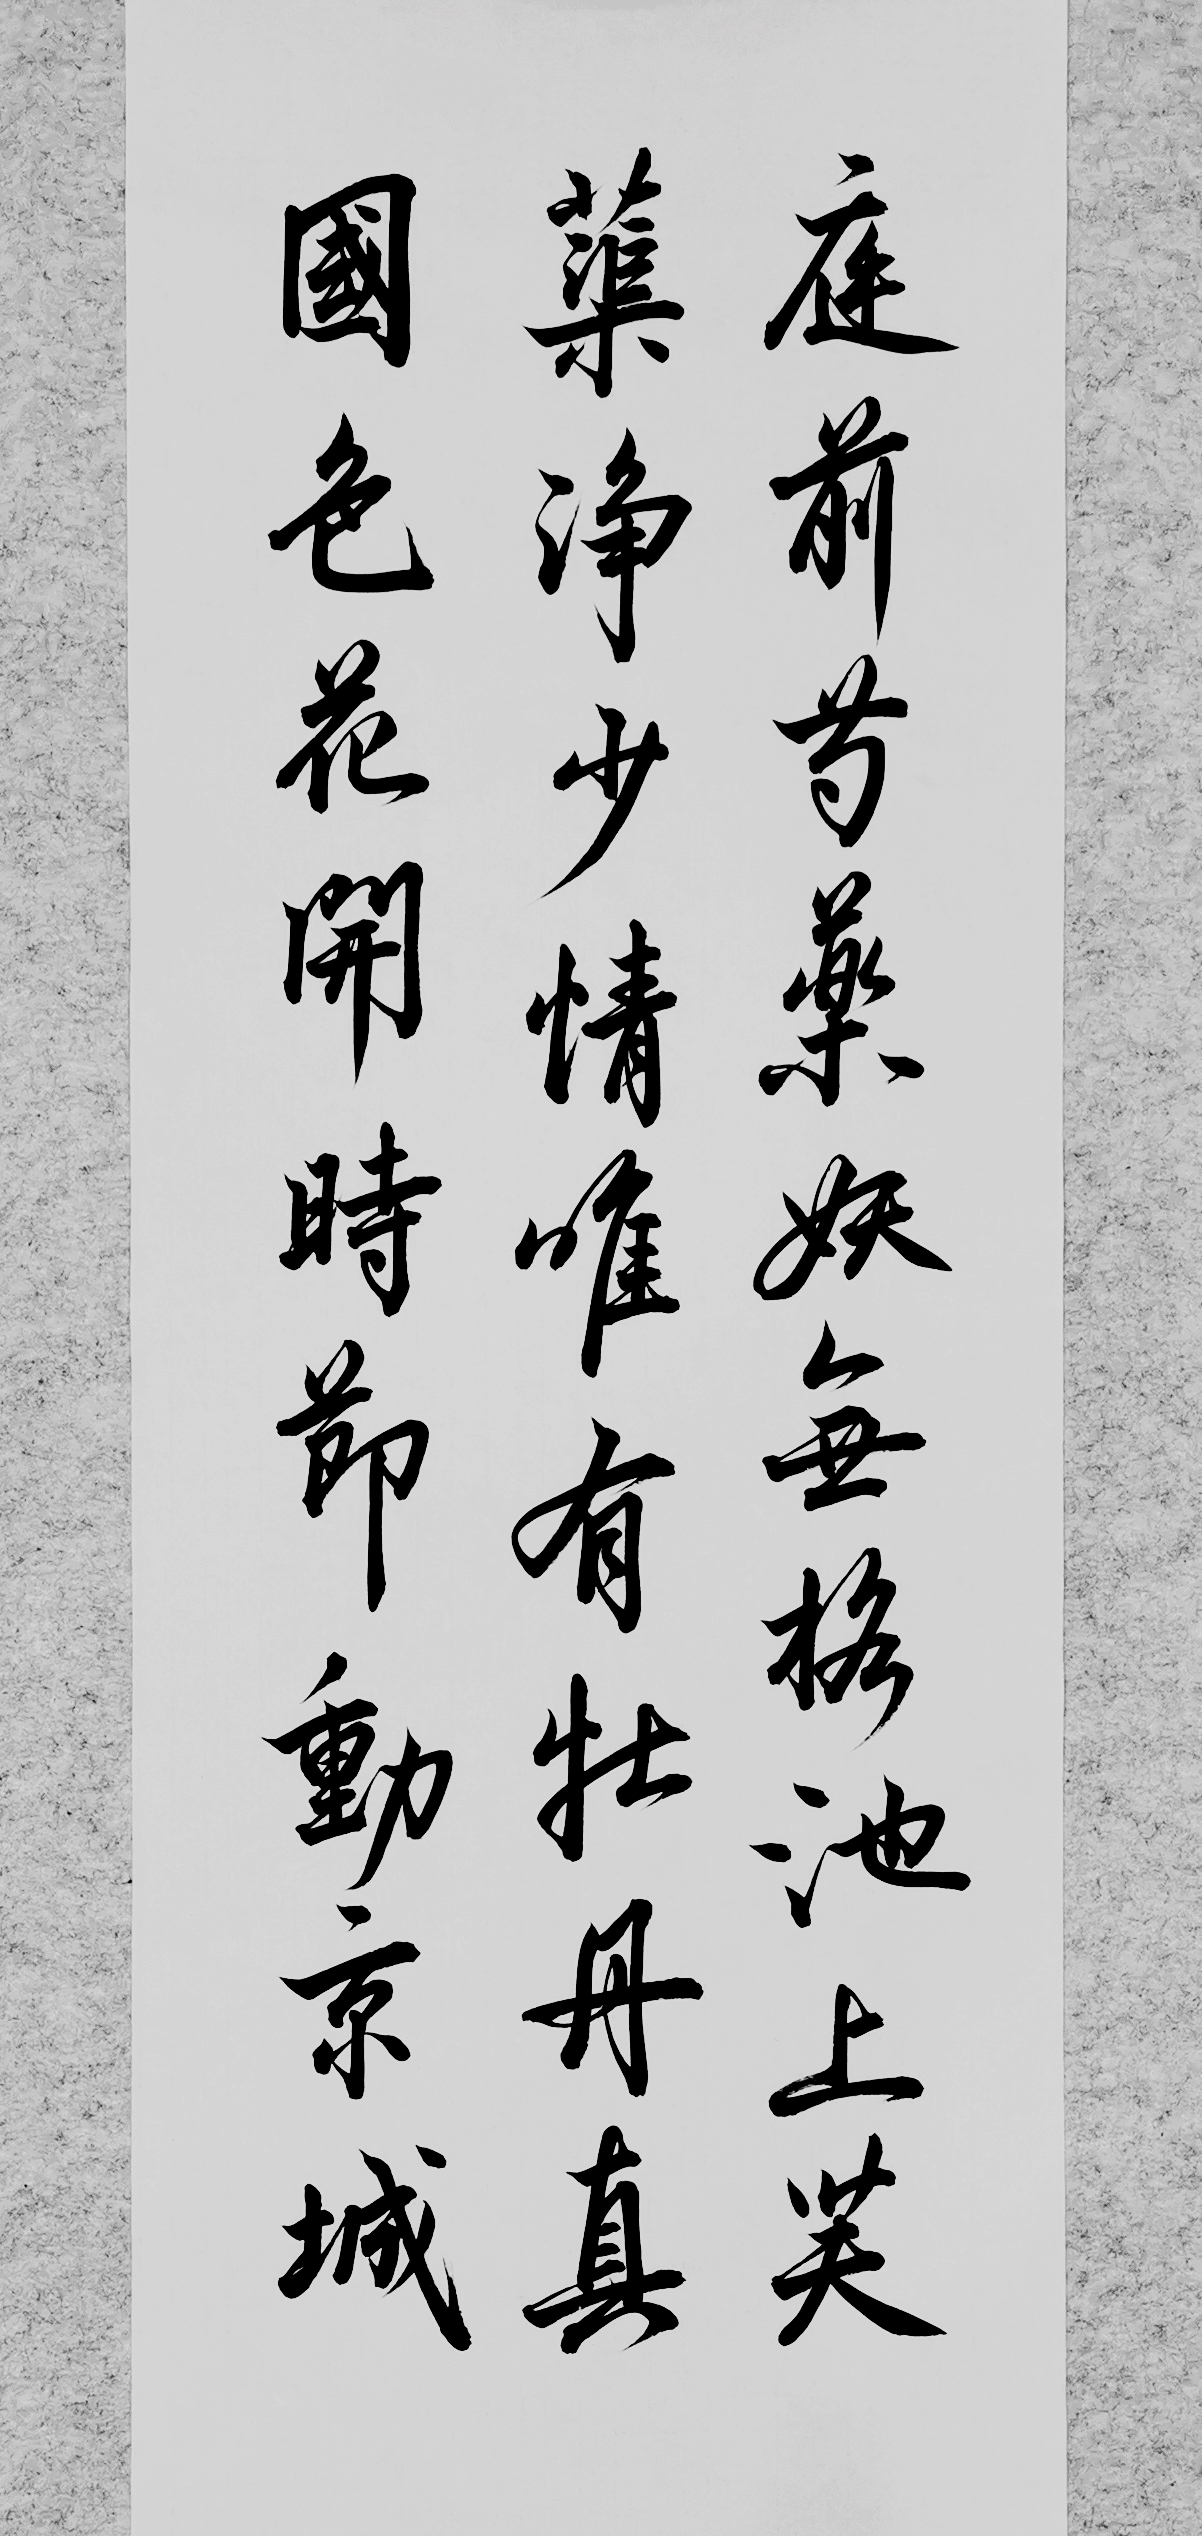 庭前芍藥妖無格池上芙
蕖淨少情唯有牡丹真
國色花開時節動京城